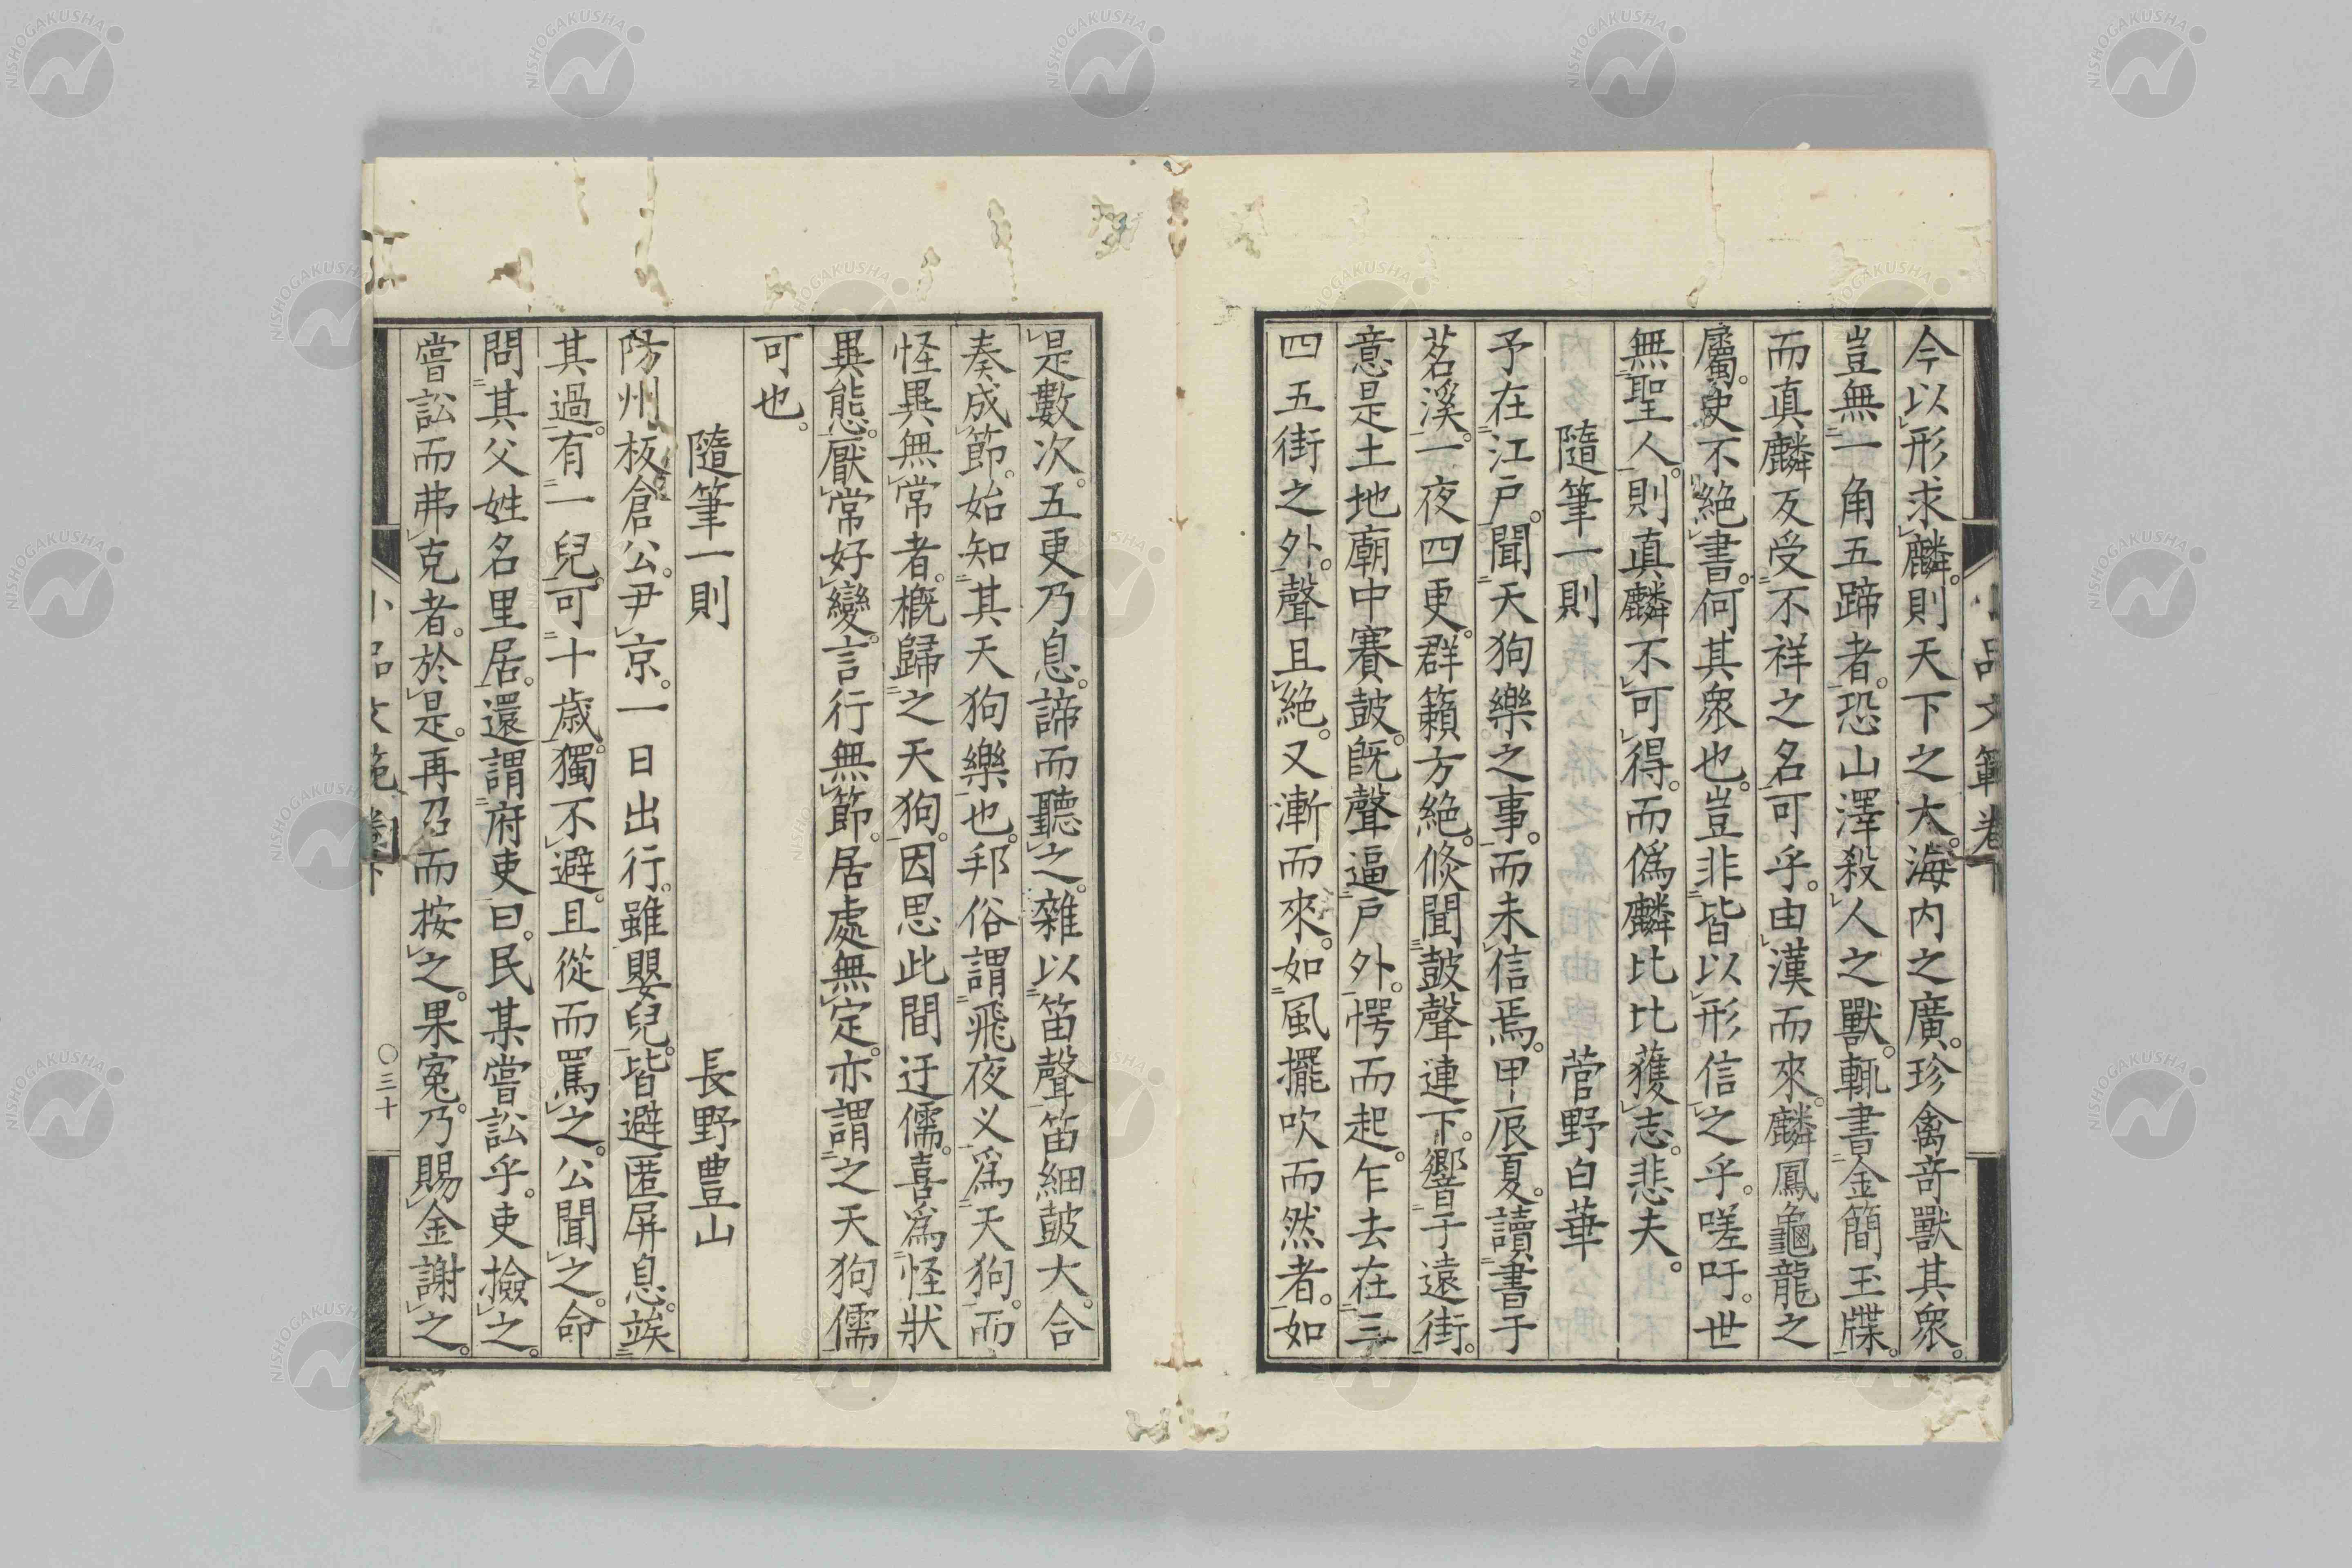 今以形求麟。則天下之大。海内之廣。珍禽奇獸其衆。
豈無一角五蹄者。恐山澤殺人之獸。輙書金簡玉牒。
而真麟反受不祥之名可乎。由漢而來。麟鳳龜龍之
屬。史不絶書。何其衆也。豈非皆以形信之乎。嗟吁。世
無聖人。則真麟不可得。而偽麟比比獲志。悲夫。
隨筆一則 菅野白華
予在江戸。聞天狗樂之事。而未信焉。甲辰夏。讀書于
茗溪。一夜四更。群籟方絶。倏聞鼓聲連下。響于遠街。
意是土地廟中賽鼓。既聲逼戸外。愕而起。乍去在三
四五街之外。聲且絶。又漸而來。如風擺吹而然者。如
是數次。五更乃息。諦而聽之。雜以笛聲笛細鼓大。合
奏成節。始知其天狗樂也。邦俗謂飛夜义爲天狗。而
怪異無常者。概歸之天狗。因思此間迂儒。喜爲怪狀
異態。厭常好變。言行無節。居處無定。亦謂之天狗儒
可也。
隨筆一則 長野豊山
防州板倉公。尹京。一日出行。雖嬰兒。皆避匿屏息。竢
其過。有一兒。可十歳。獨不避。且從而罵之。公聞之。命
問其父姓名里居。還謂府吏曰。民某嘗訟乎。吏撿之。
嘗訟而弗克者。於是。再召而按之。果寃。乃賜金謝之。
小品文範 卷下
〇三十
NISHOGAKUSHA